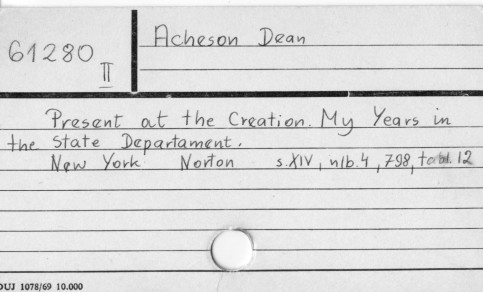 61280
II
Acheson Dean
Present at the Creation. My Years in
the State Departament.
New York Norton s.XIV, nlb.4, 798, tabl. 12
DUJ 1078/69 10.000